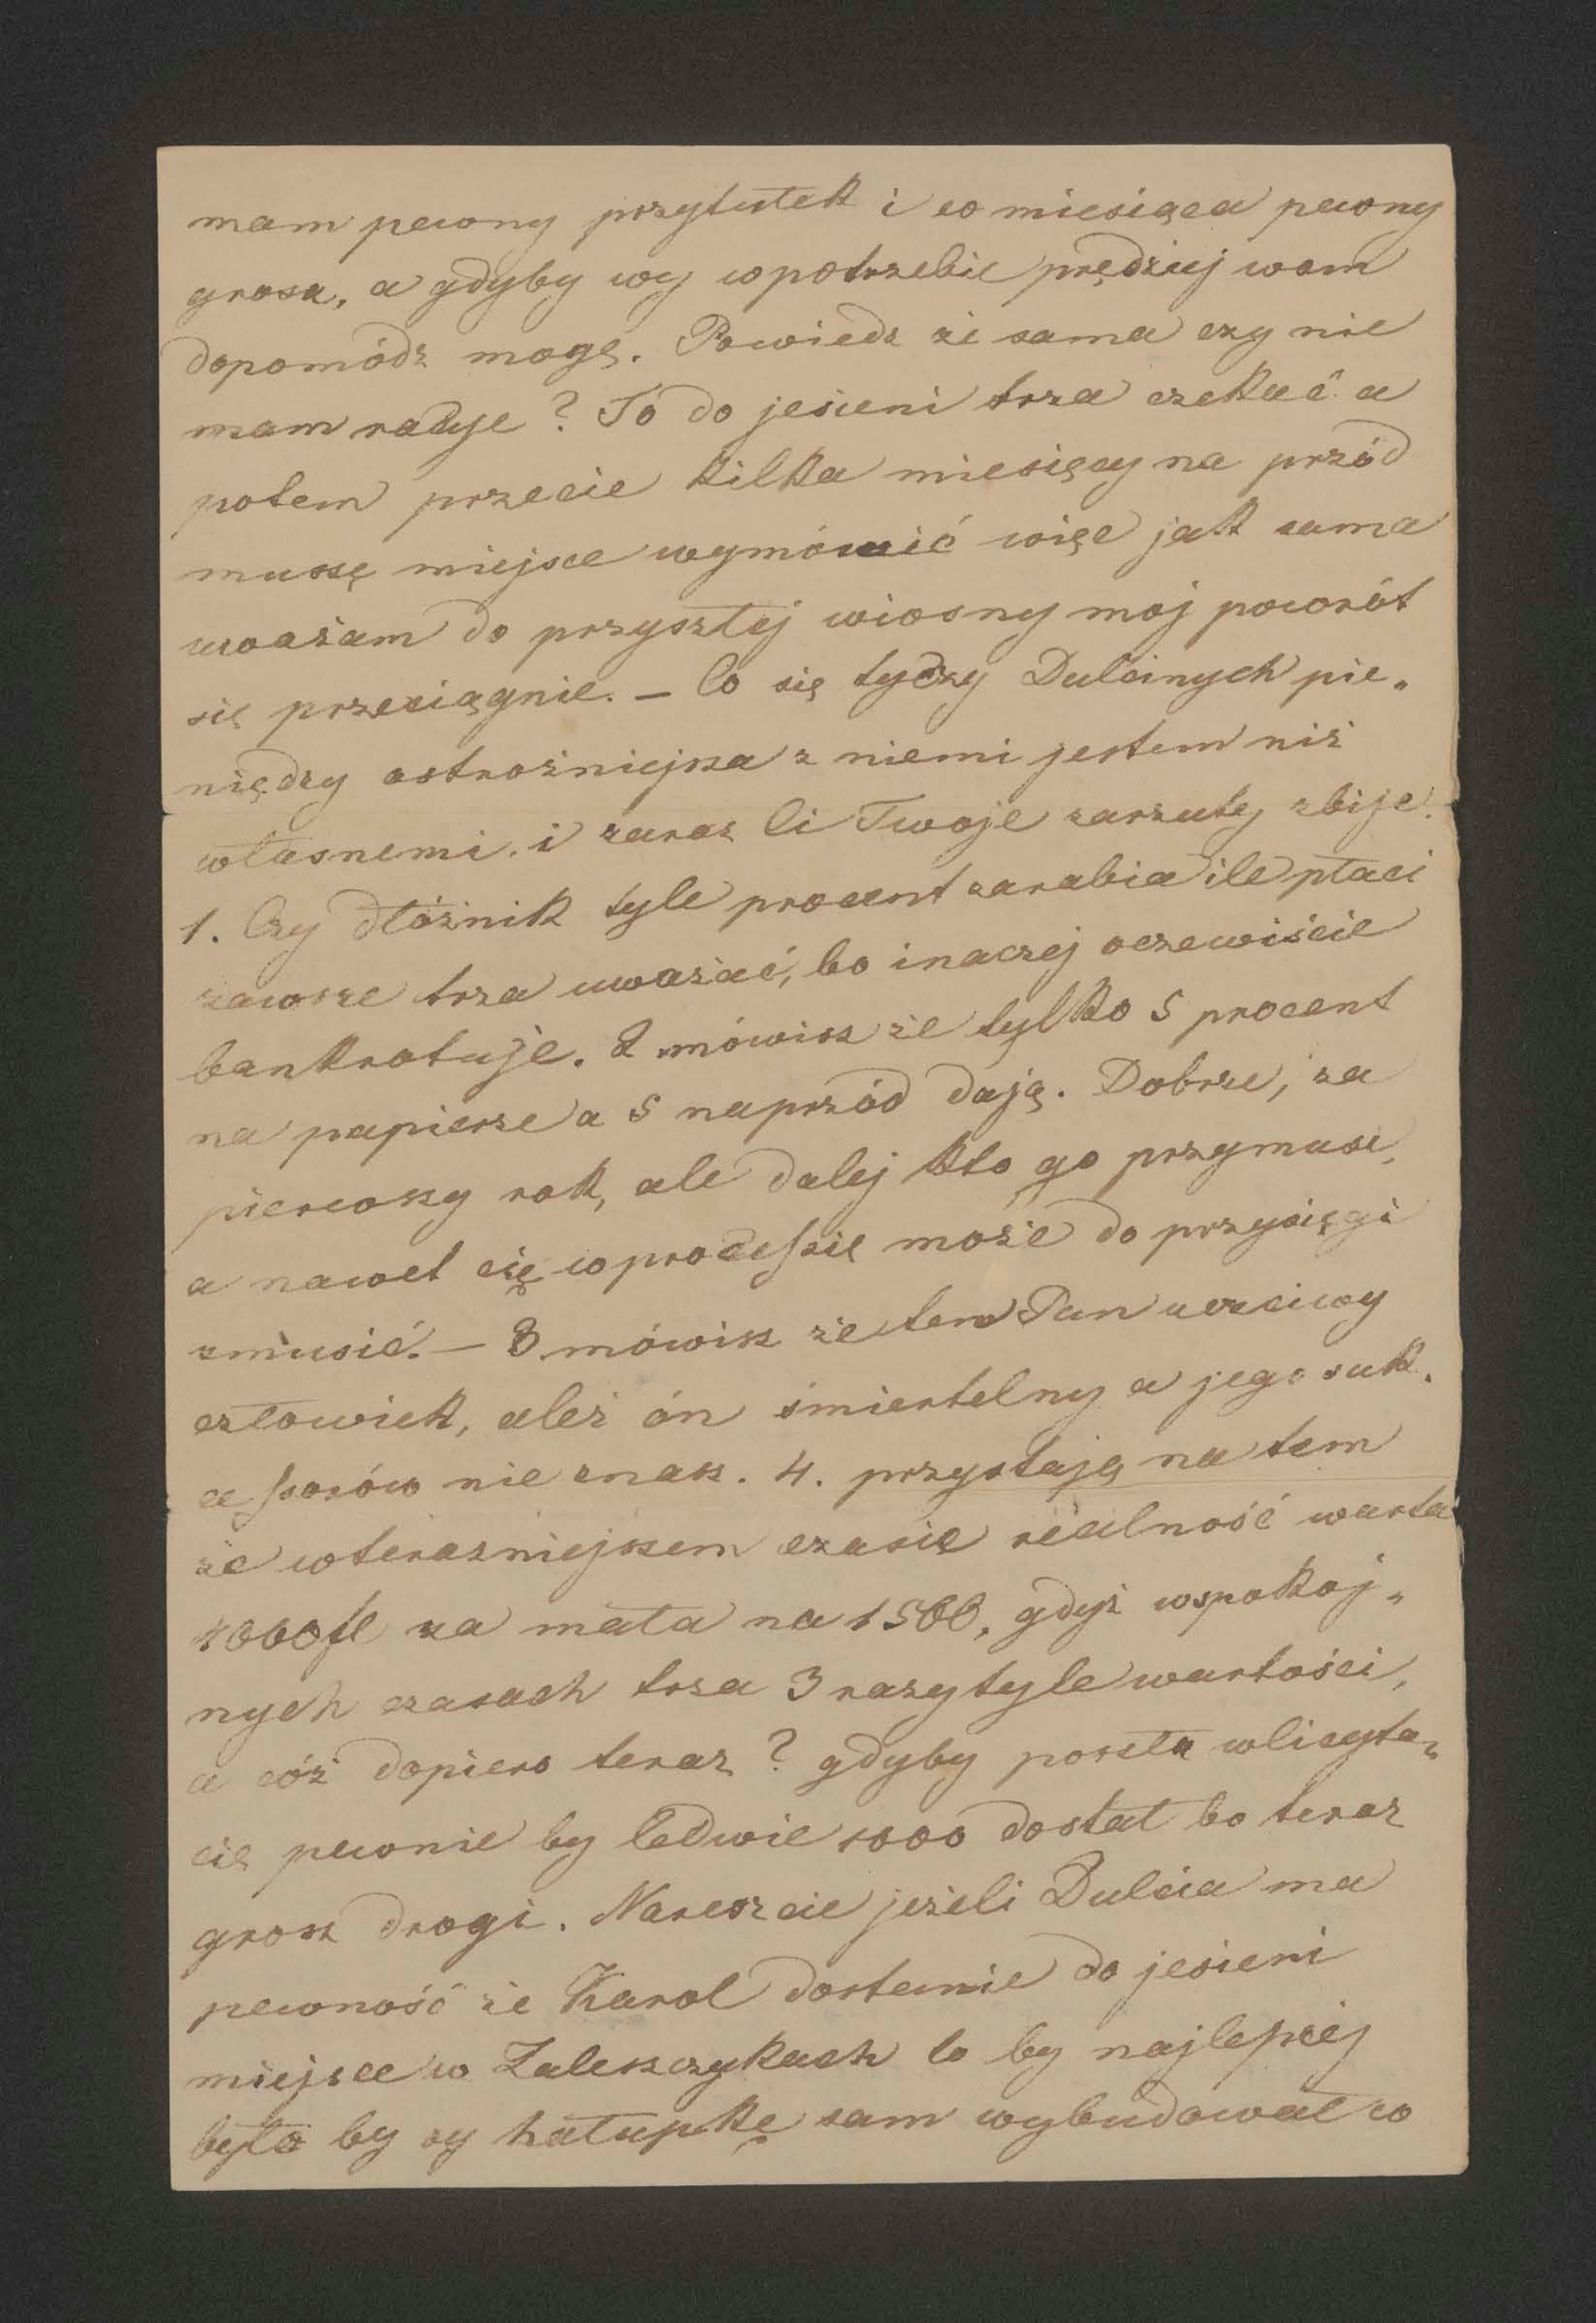 mam pewny przytułek i co miesiąca pewny
grosz, a gdyby wy w potrzebie prędzej wam
dopomódz mogę. Powiedz że sama czy nie
mam racyje? To do jesieni trza czekać a
potem przecie kilka miesięcy na przód
muszę miejsce wymówić więc jak sama
uważam do przyszłej wiosny moj powrót
się przeciągnie. – Co się tyczy Dulcinych pie„
niędzy ostrożniejsza z niemi jestem niż
własnemi. i zaraz Ci Twoje zarzuty zbije.
1. Czy dłóżnik tyle procent zarabia ile płaci
zawsze trza uważać, bo inaczej oczewiście
bankrotuje. 2 mówisz że tylko 5 procent
na papierze a 5 naprzód dają. Dobrze, za
pierwszy rok, ale dalej kto go przymusi,
a nawet cię w procesſie może do przysięgi
zmusić. – 3. mówisz że ten Pan uczciwy
człowiek, aleź ón śmiertelny a jego suk.
ceſsorów nie znasz. 4. przystaję na tem
że w teraźniejszem czasie réalność warta
4000 fl za mała na 1500, gdyż w spokoj„
nych czasach trza 3 razy tyle wartości,
a cóż dopiero teraz? gdyby poszła w licyta„
cię pewnie by ledwie 1000 dostał bo teraz
grosz drogi. Nareszcie jeżeli Dulcia ma
pewność że Karol dostanie do jesieni
miejsce w Zaleszczykach to by najlepiej
było by sy hałupkę sam wybudował co